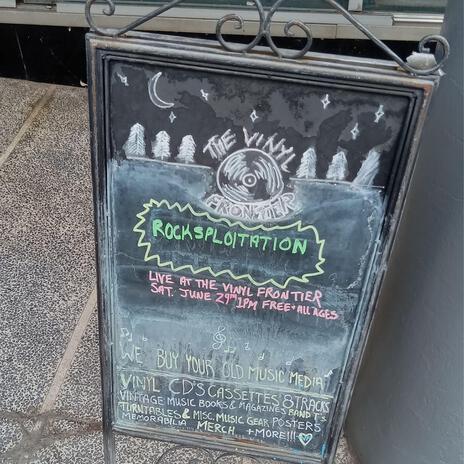 THE VINYL
FRONTIER
ROCKSPLOITATION
LIVE AT THE VINYL FRONTIER
SAT. JUNE 29TH 1PM FREE + ALL AGES
WE BUY YOUR OLD MUSIC MEDIA
VINYL CD'S CASSETTES 8 TRACKS
VINTAGE MUSIC BOOKS & MAGAZINES BAND T'S
TURNTABLES & MISC. MUSIC GEAR POSTERS
MEMORABILIA MERCH + MORE!!!